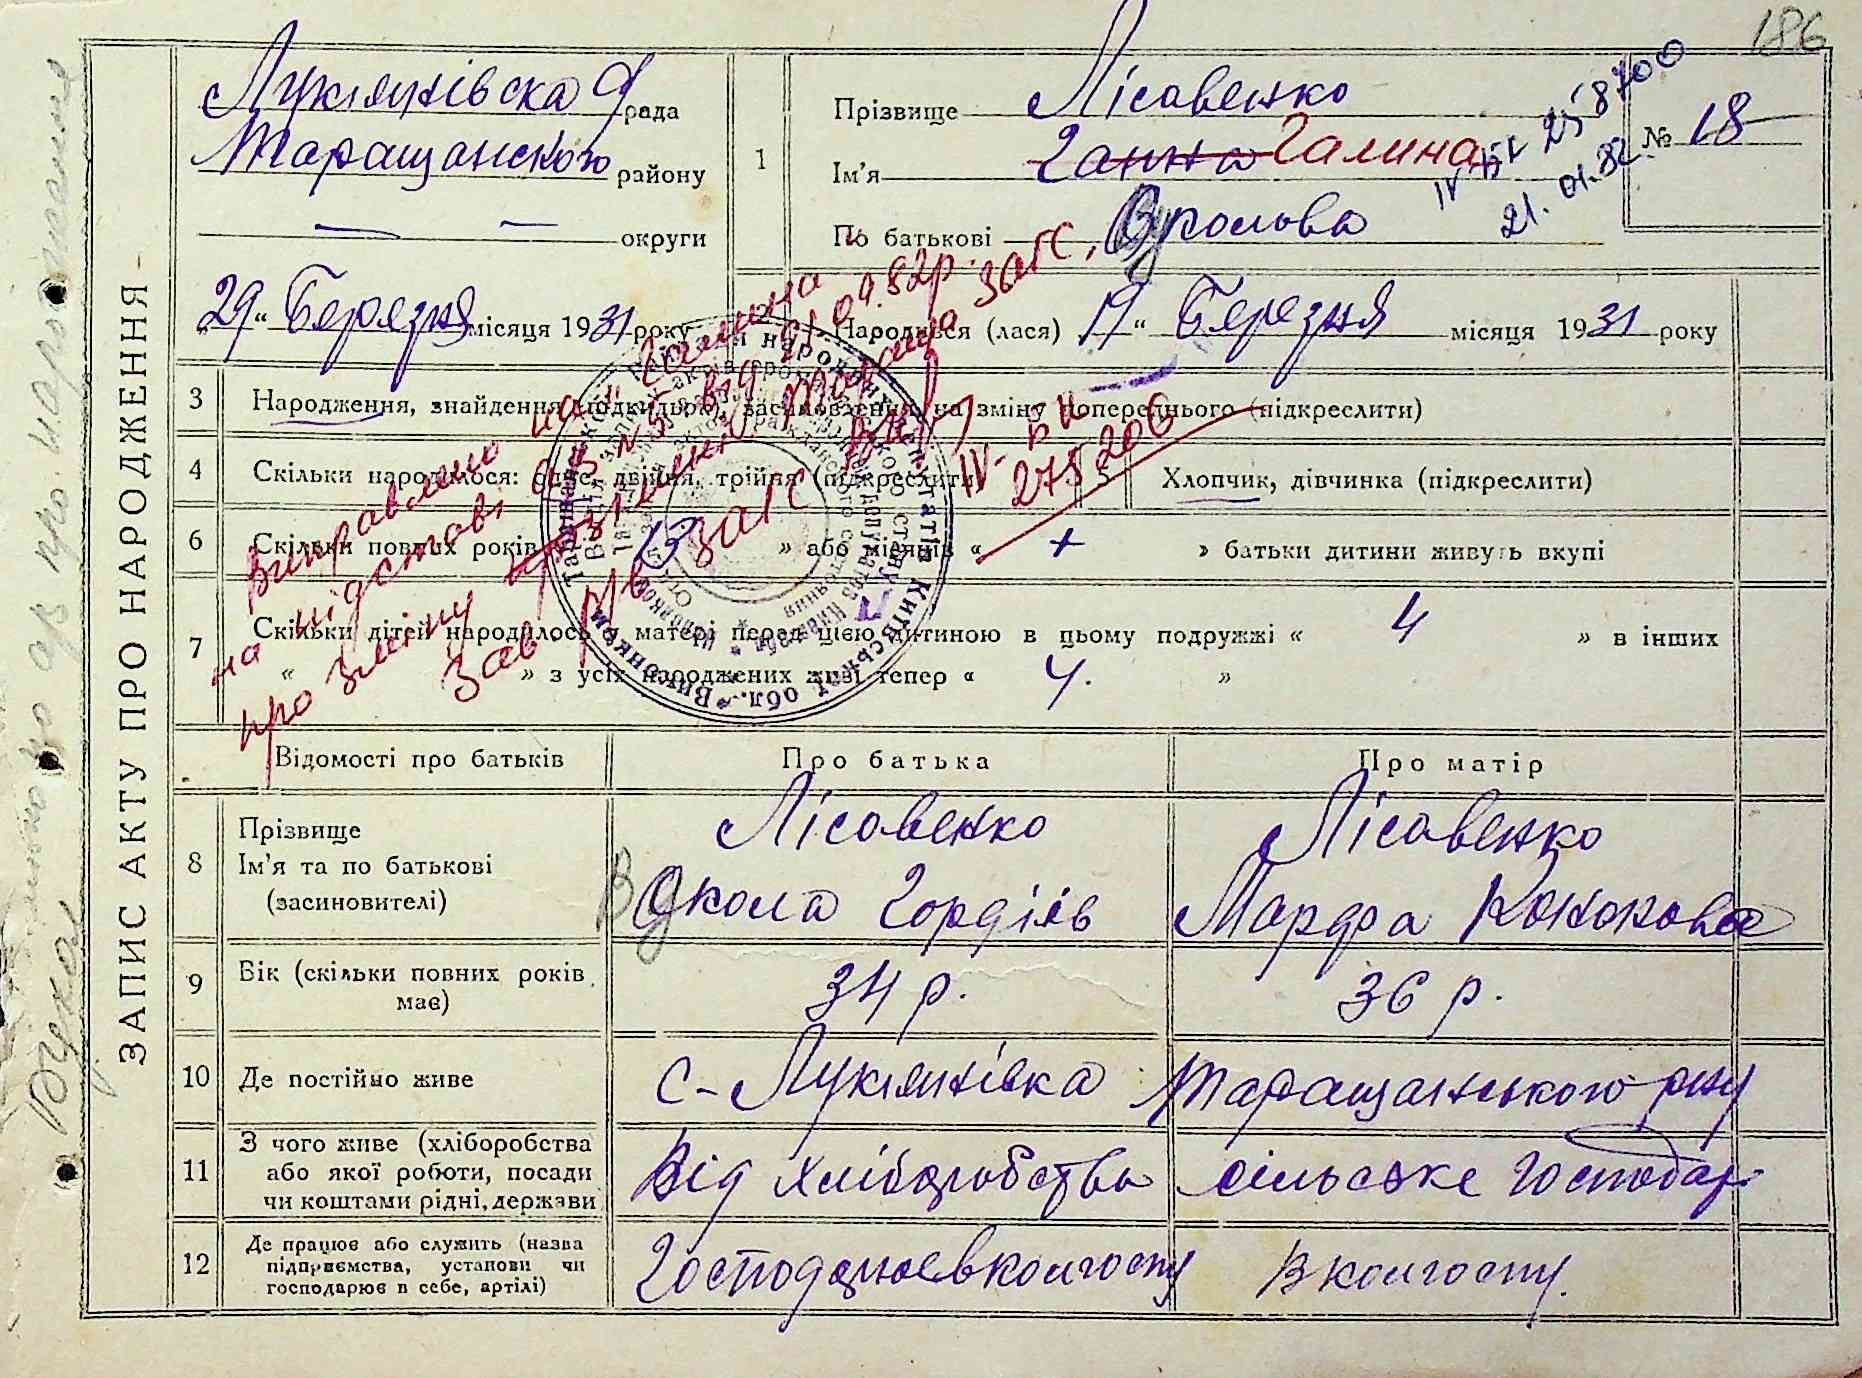 186
ЗАПИС АКТУ ПРО НАРОДЖЕННЯ
Лукянівска рада
Таращанского району
округи
„29“ Березня місяця 1931 року
1
Прізвище Лісавенко
Ім'я Ганна Галина
По батькові Вуколова
№ 18
IV 258700
21.01.82.
Народився (лася) 19 “ Березня місяця 1931 року
3 Народження, знайдення (підкидьок), засиновлення, на зміну попереднього (підкреслити)
4 Скільки народилося: одне, двійня, трійня (підкреслити)
5 Хлопчик, дівчинка (підкреслити)
IV-БК
275206
6 Скільки повних років 13 » або місяців « + » батьки дитини живуть вкупі
7 Скільки дітей народилось у матері перед цією дитиною в цьому подружжі « 4 » в інших
« » з усіх народжених живі тепер « 4. »
Виправлено на „Галина“
на підставі
про зміну
Зав. ЗАГС
Відомості про батьків Про батька Про матір
8 Прізвище
Ім'я та по батькові
(засиновителі)
Лісавенко
Вукола Гордіїв
Лісавенко
Марфа Кононова
9 Вік (скільки повних років має)
34 р. 36 р.
10 Де постійно живе
с-Лукянівка Таращанського р-ну
11 З чого живе (хліборобства
або якої роботи, посади
чи коштами рідні, держави
Від хліборобства сільське господар
12 Де працює або служить (назва
підприємства, установи чи
господарює в себе, артілі)
Господарює в колгоспу В колгоспу.
Вукол